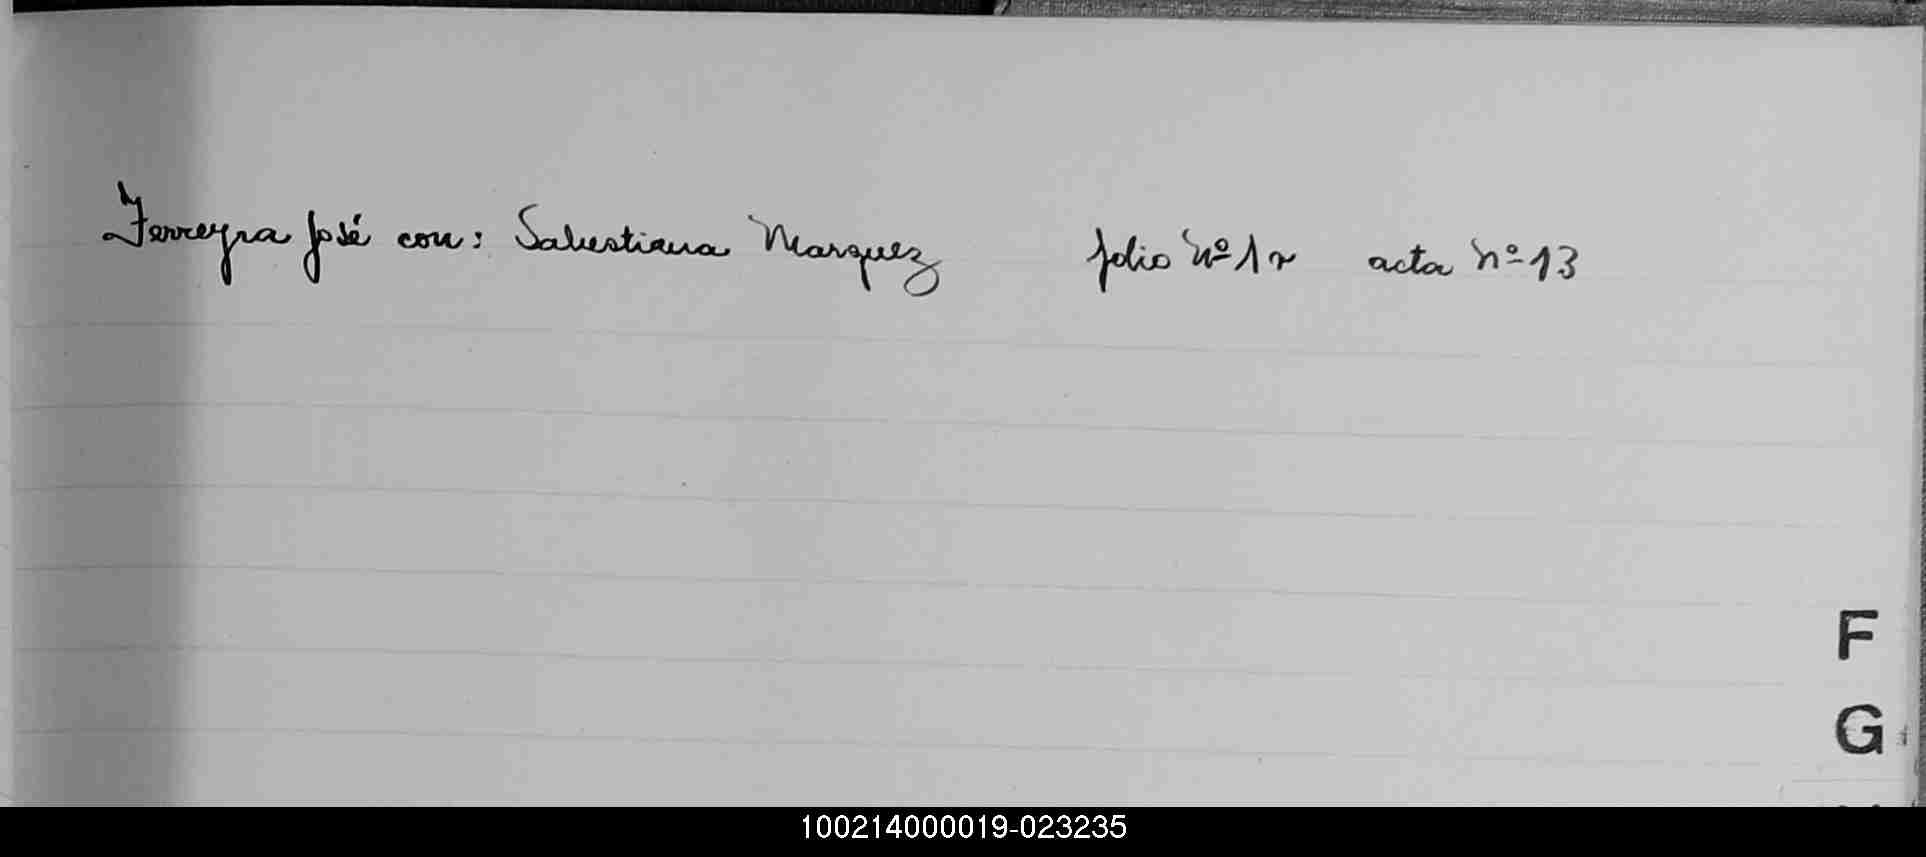 Ferreyra José con: Salustiana Marquez folio Nº 12 acta Nº 13
F
G
100214000019-023235